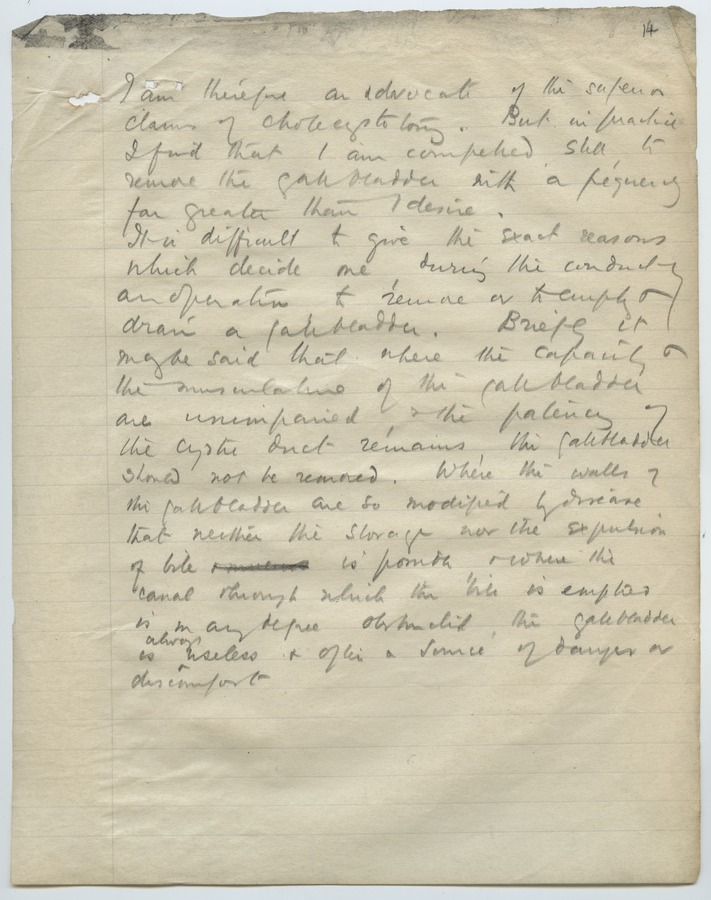 14
I am therefore an advocate of the superior
claims of cholecystotomy. But in practice
I find that I am compelled still to
remove the gall bladder with a frequency
far greater than I desire.
It is difficult to give the exact reasons
which decide me, during the conduct of
an operation to remove or to empty &
drain a gallbladder. Briefly it
may be said that where the capacity &
the musculature of the gallbladder
are unimpaired, & the patency of
the cystic duct remains the gallbladder
should not be removed. Where the walls of
the gallbladder are so modified by disease
that neither the storage nor the expulsion
of bile is possible & where the
canal through which the bile is emptied
is in any degree obstructed, the gallbladder
always
is useless & often a source of danger or
discomfort